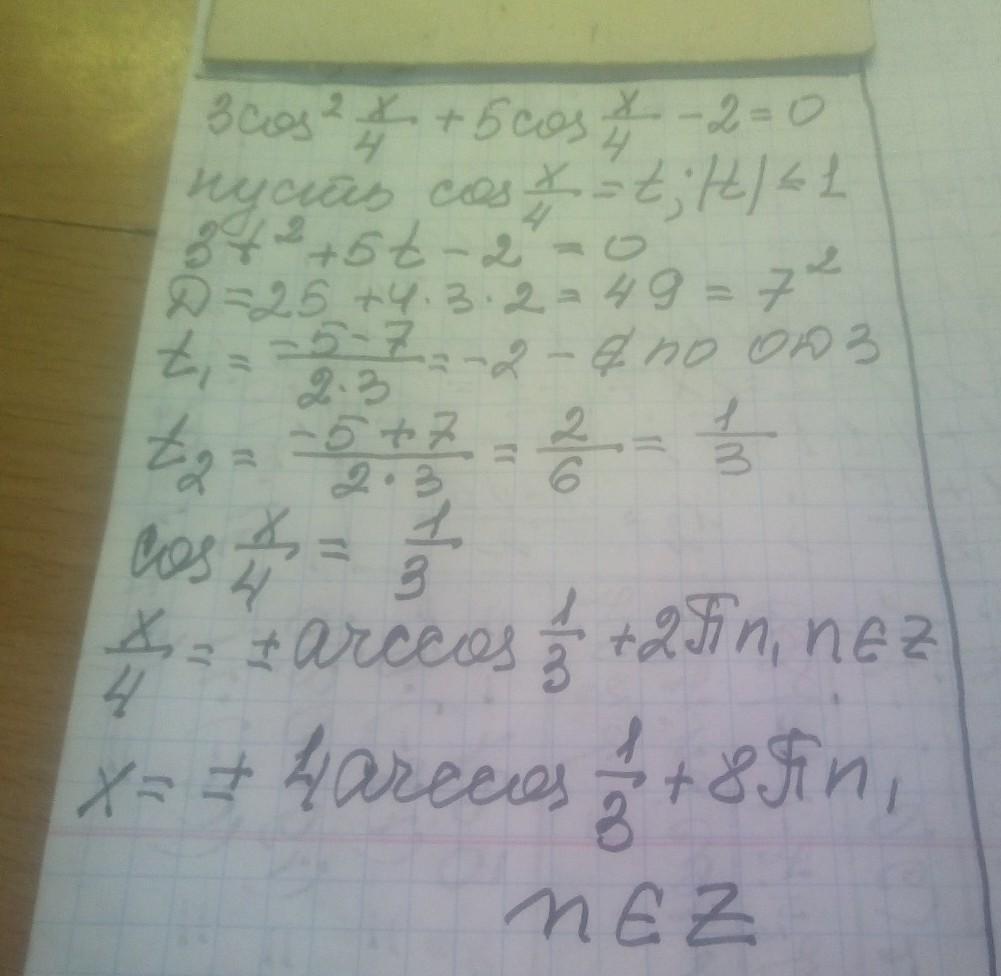 3cos² x/4 + 5cos x/4 - 2 = 0
пусть cos x/4 = t; |t| ≤ 1
3t² + 5t - 2 = 0
D = 25 + 4·3·2 = 49 = 7²
t₁ = (-5-7)/(2·3) = -2 - ∉ по ОДЗ
t₂ = (-5+7)/(2·3) = 2/6 = 1/3
cos x/4 = 1/3
x/4 = ± arccos 1/3 + 2πn, n∈Z
x = ± 4arccos 1/3 + 8πn,
n∈Z